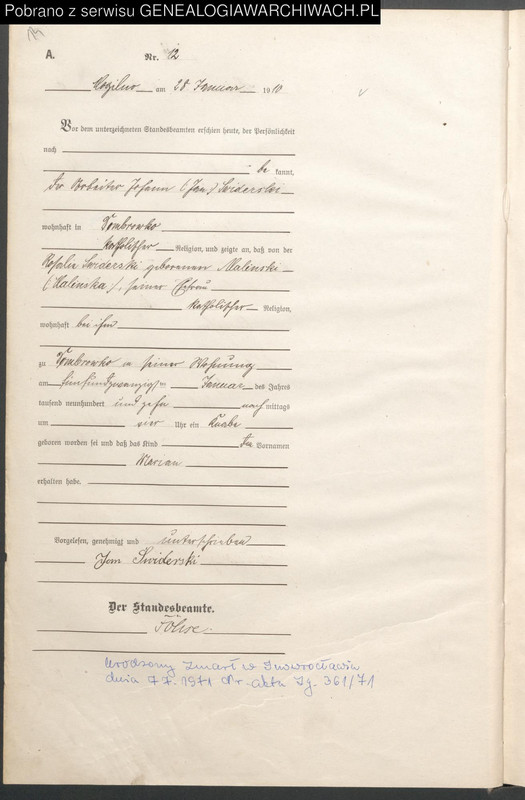 Pobrano z serwisu GENEALOGIAWARCHIWACH.PL
A.
Nr. 12
Mogilno am 28 Januar 1910
Vor dem unterzeichneten Standesbeamten erschien heute, der Persönlichkeit
nach
be kannt,
der Arbeiter Johann (Jan) Swiderski
wohnhaft in Dombrowko
katholischer Religion, und zeigte an, daß von der
Rosalie Swiderski geborenen Malenski
(Malenska), seiner Ehefrau
katholischer Religion,
wohnhaft bei ihm
zu Dombrowko in seiner Wohnung
am fünfundzwanzigsten Januar des Jahres
tausend neunhundert und zehn nach mittags
um vier Uhr ein Knabe
geboren worden sei und daß das Kind den Vornamen
Marian
erhalten habe.
Vorgelesen, genehmigt und unterschrieben
Jan Swiderski
Der Standesbeamte.
Urodzony zmarł w Inowrocławiu
dnia 7.7.1971 Nr. aktu Zg. 361/71